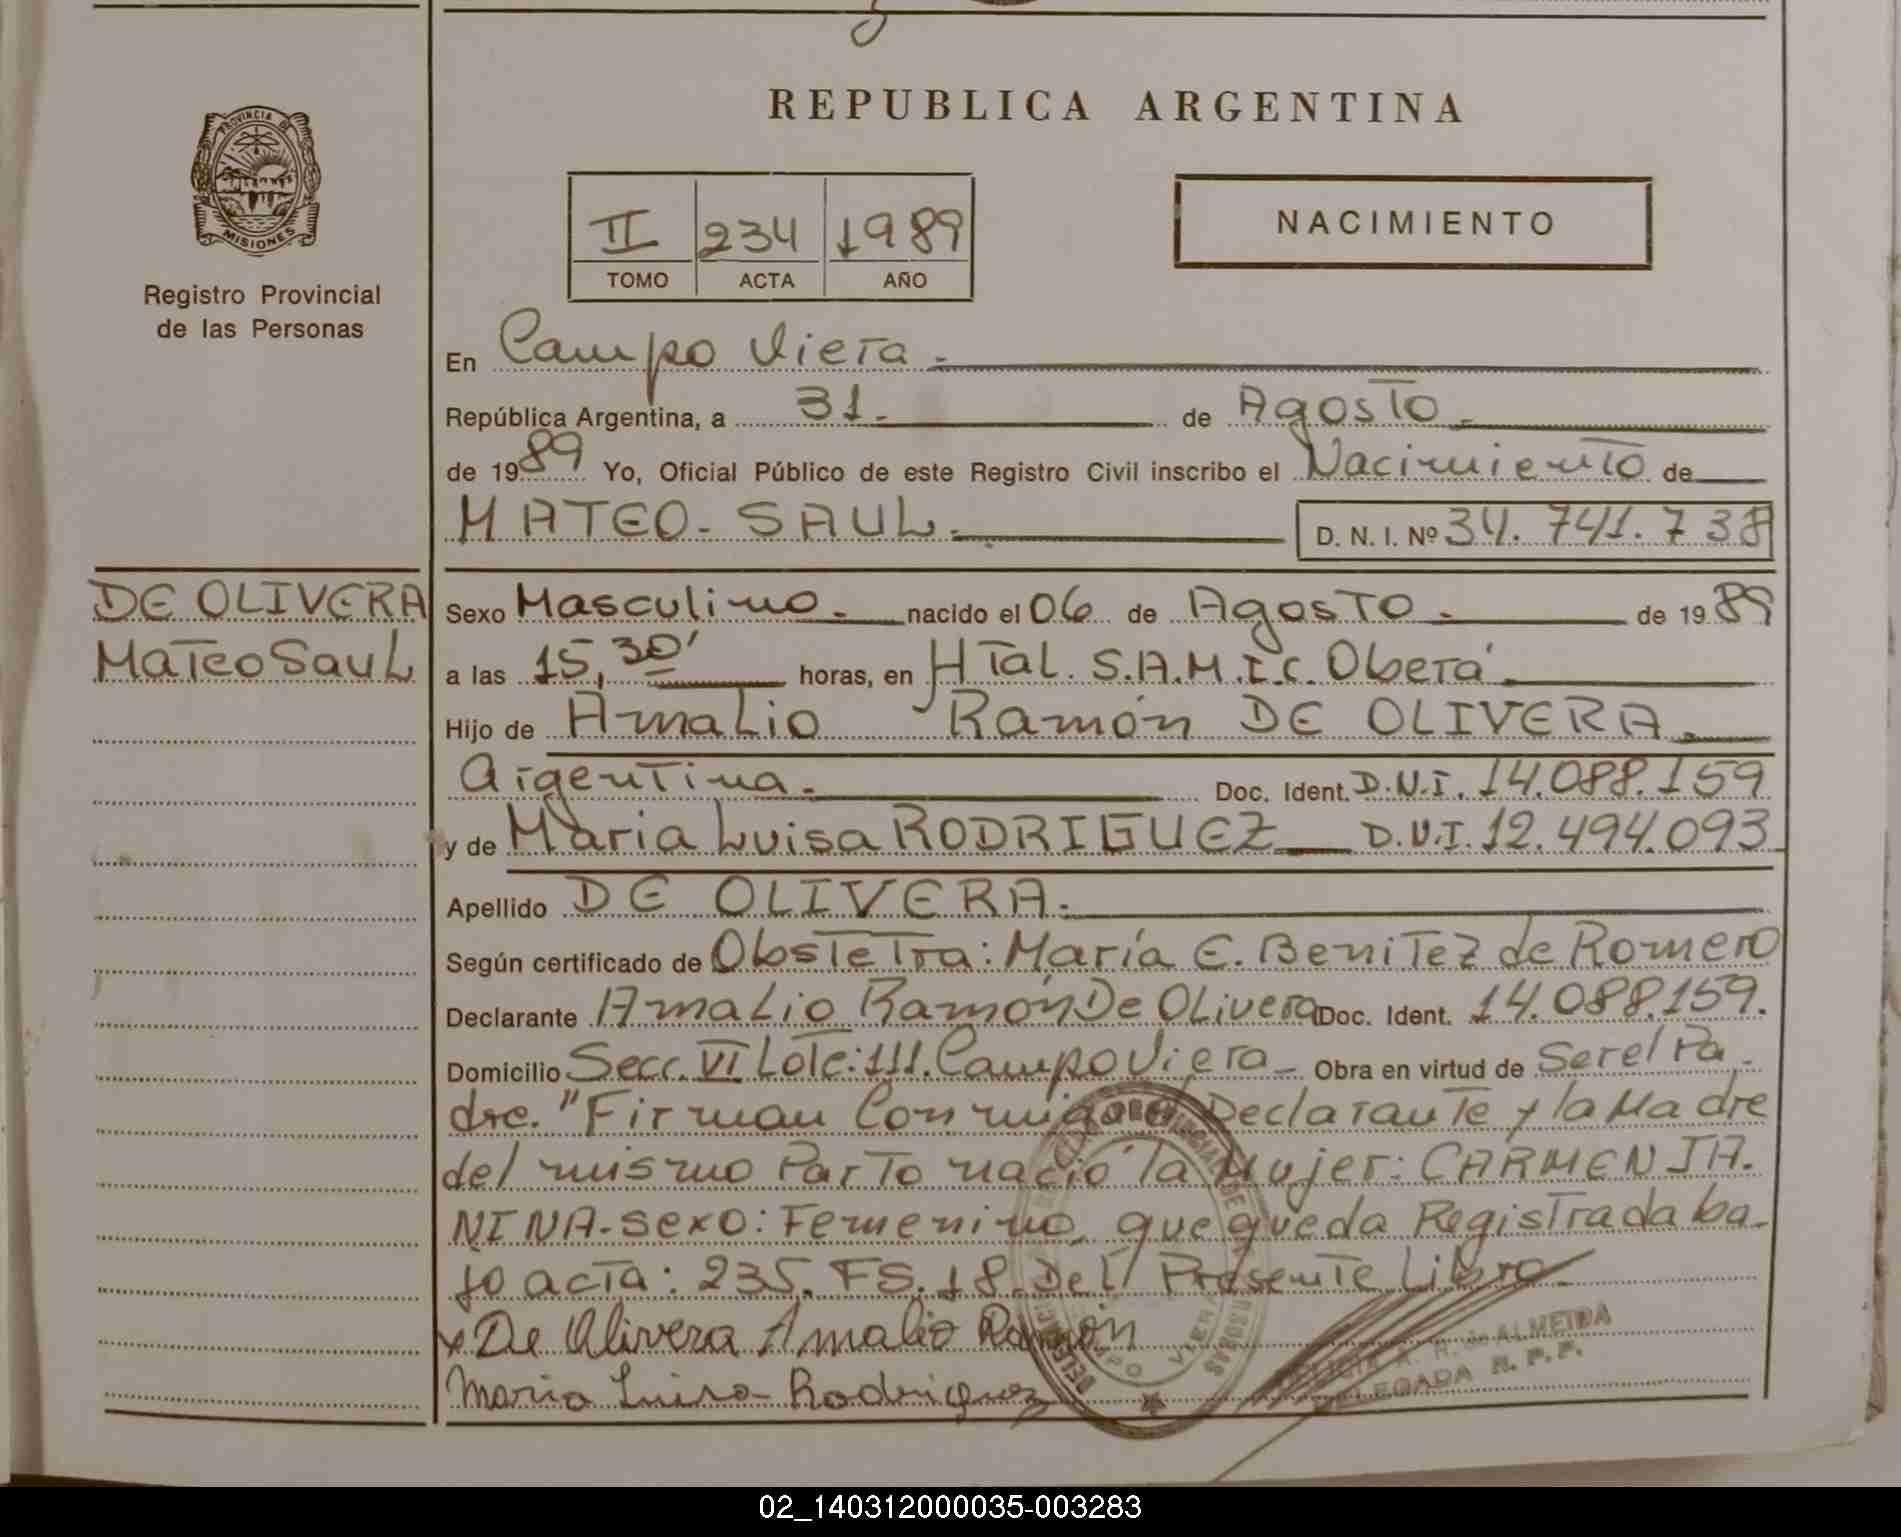 REPUBLICA ARGENTINA
PROVINCIA DE
MISIONES
Registro Provincial
de las Personas
II 234 1989
TOMO ACTA AÑO
NACIMIENTO
En Campo Viera.-
República Argentina, a 31.- de Agosto.-
de 1989 Yo, Oficial Público de este Registro Civil inscribo el Nacimiento de
MATEO-SAUL.- D. N. I. Nº 34.741.738
DE OLIVERA
Mateo Saul
Sexo Masculino.- nacido el 06 de Agosto.- de 1989
a las 15,30' horas, en HTal. S.A.M.I.C. Oberá.
Hijo de Amalio Ramón DE OLIVERA.-
Argentina.- Doc. Ident. D.N.I. 14.088.159
y de Maria Luisa RODRIGUEZ D.N.I. 12.494.093
Apellido DE OLIVERA.-
Según certificado de Obstetra: María E. Benitez de Romero
Declarante Amalio Ramón De Olivera Doc. Ident. 14.088.159.
Domicilio Secc. VI Lote: 111. Campo Viera- Obra en virtud de Ser el Pa-
dre. "Firman Conmigo el Declarante y la Madre
del mismo Parto nació la Mujer: CARMEN JA-
NINA-sexo: Femenino, que queda Registrada ba-
jo acta: 235. FS. 18. Del Presente Libro
x De Olivera Amalio Ramón
Maria Luisa Rodriguez
CAMPO VIERA
MISIONES
ALMEIDA
DELEGADA R. P. P.
02_140312000035-003283